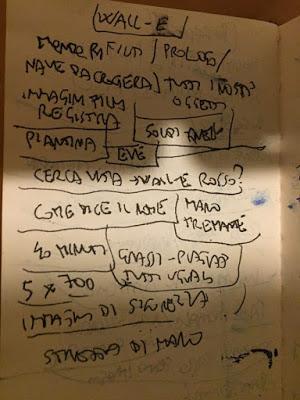 WALL-E
MONDO RIFIUTI / PROLOGO /
NAVE DA CROCIERA / TUTTI I NOSTRI
OGGETTI
IMMAGINI FILM
REGISTRA
SOLDI ANELLO
PIANTINA
EVE
CERCA VITA → WALL-E ROSSO?
COME DICE IL NOME
MANO
TREMANTE
40 MINUTI
GRASSI - PIGIAMI
TUTTI UGUALI
5 x 700
IMMAGINI DI SICUREZZA
STRETTA DI MANO